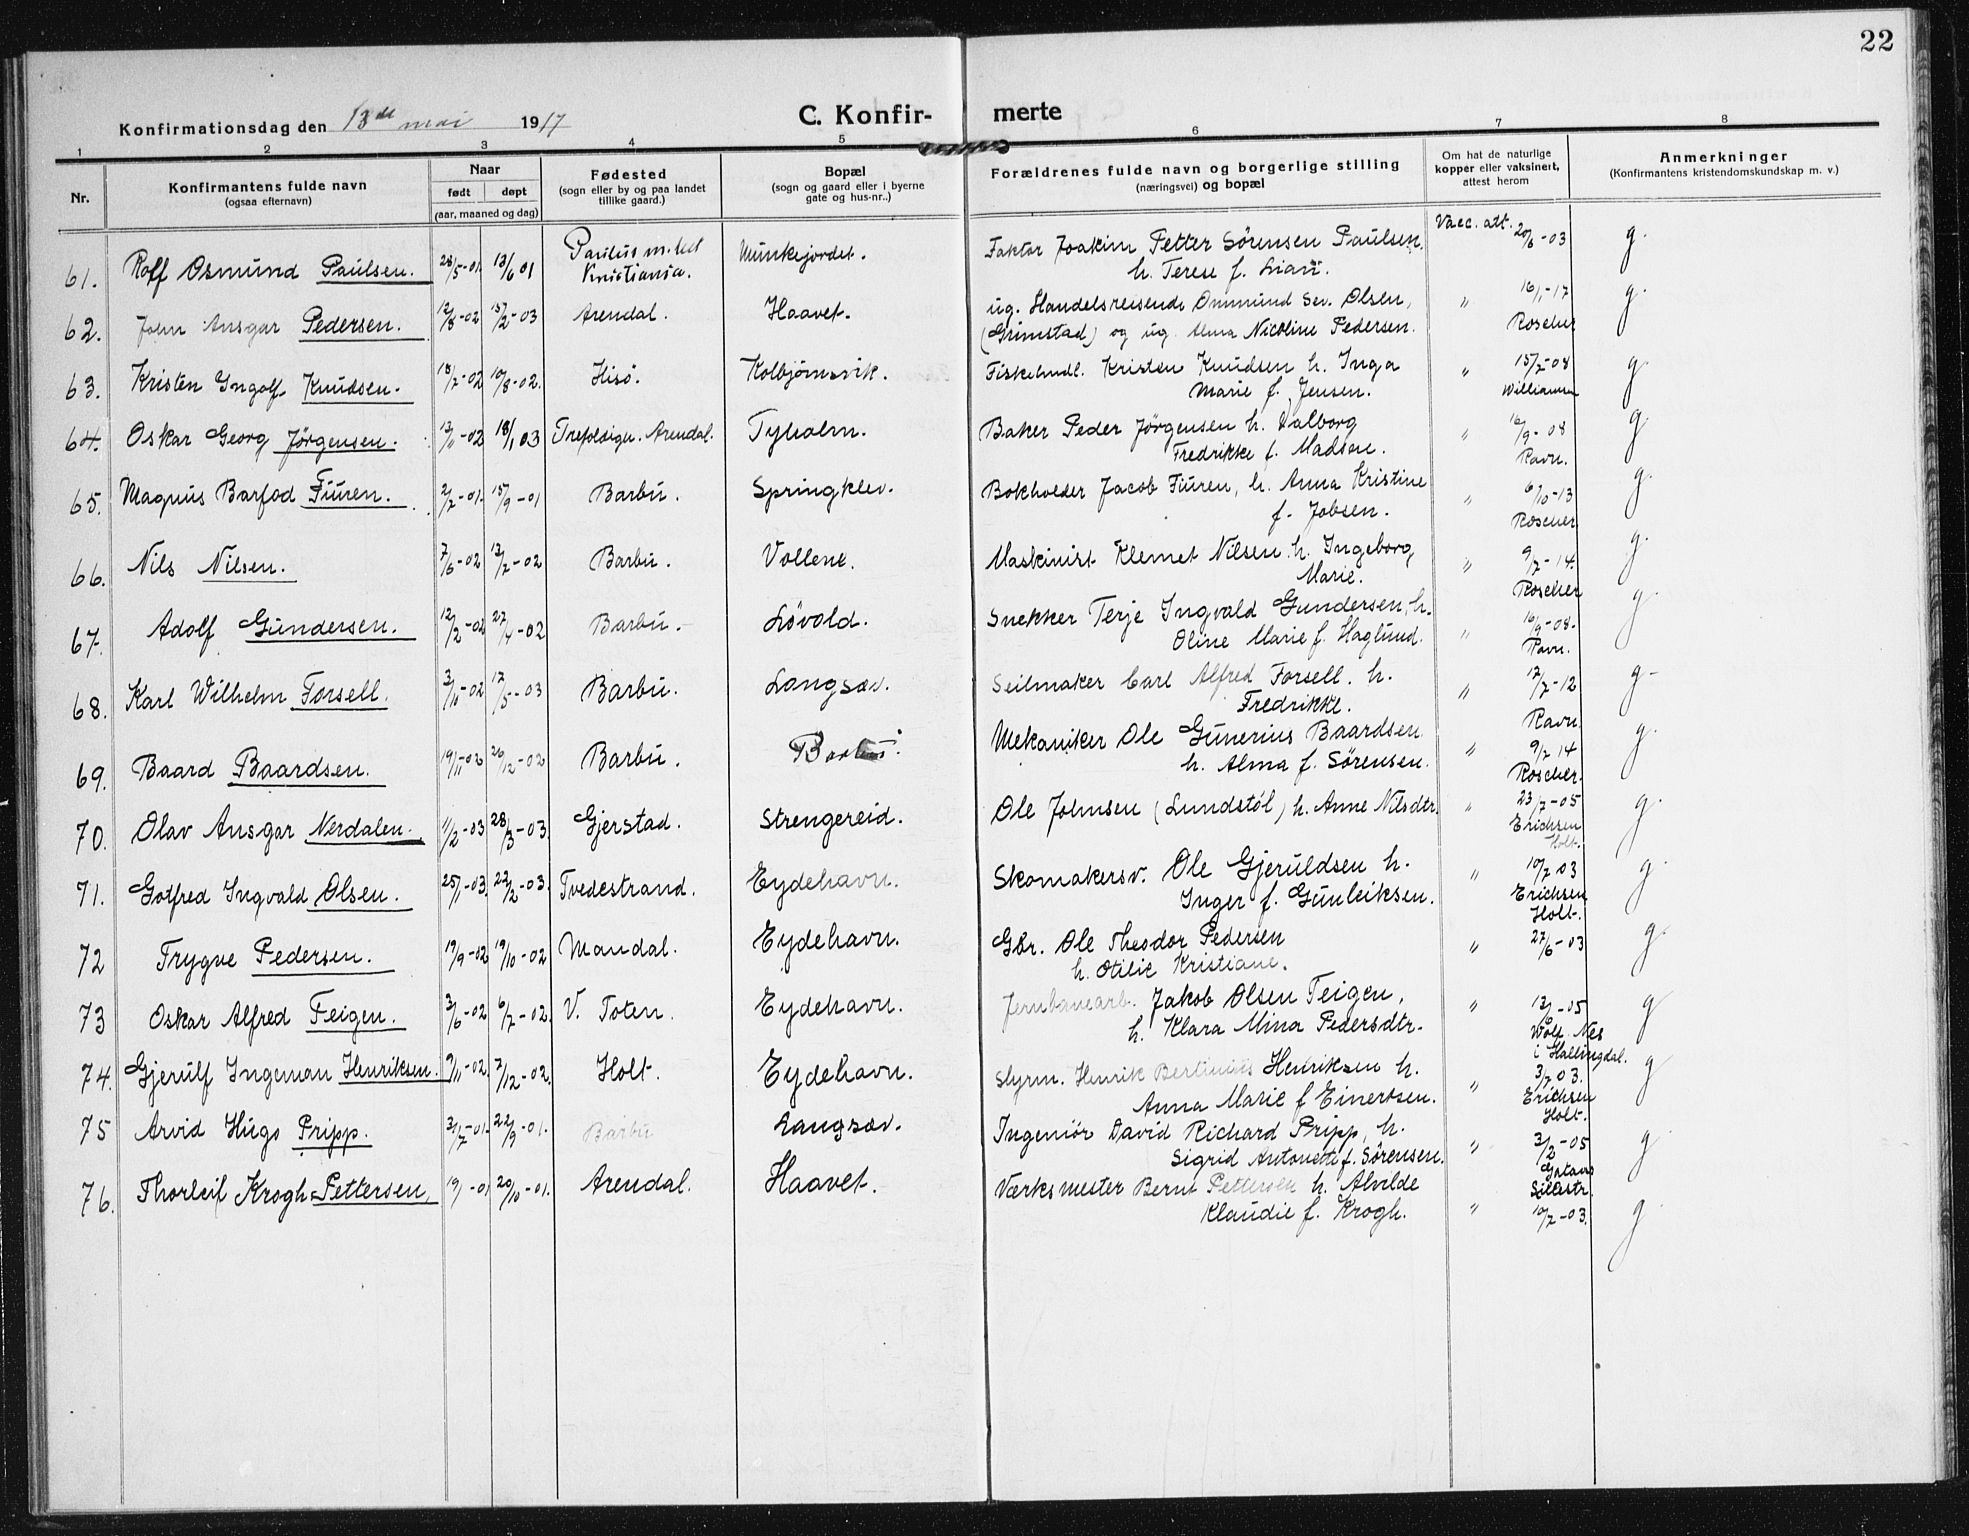 22
Konfirmationsdag den 13de mai 1917
C. Konfir-merte
1 2 3 4 5 6 7 8
Nr.
Konfirmantens fulde navn
(ogsaa efternavn)
Naar
født døpt
(aar, maaned og dag)
Fødested
(sogn eller by og paa landet
tillike gaard.)
Bopæl
(sogn og gaard eller i byerne
gate og hus-nr..)
Forældrenes fulde navn og borgerlige stilling
(næringsvei) og bopæl
Om hat de naturlige
kopper eller vaksinert,
attest herom
Anmerkninger
(Konfirmantens kristendomskundskap m. v.)
61. Rolf Osmund Paulsen. 28/5-01 13/6 01 Paulus m.het Kristiania. Munkejordet. Faktor Joakim Petter Sørensen Paulsen, Vacc. att. 20/6-03 g.
h. Terese f. Lian.
62. John Ansgar Pedersen. 12/8-02 15/2-03 Arendal. Haavet. ug. Handelsreisende Ommund Sev. Olsen, " 16/1-17 g.
(Grimstad) og ug. Alma Nicoline Pedersen. Roscher
63. Kristen Ingolf Knudsen. 18/7-02 10/8-02. Hisø. Kolbjørnsvik. Fiskehndl. Kristen Knudsen h. Inga " 15/7-08 g
Marie f. Jensen. Williamsen
64. Oskar Georg Jørgensen. 13/11-02 18/1 03 Trefoldigh. Arendal. Tyholm. Baker Peder Jørgensen h. Valborg " 16/9-08 g.
Fredrikke f. Madsen. Ravn.
65. Magnus Barfod Furen. 2/7-01. 15/9-01 Barbu. Springklev. Bokholder Jacob Furen, h. Anna Kristine " 6/10-13 g.
f. Jobsen. Roscher
66. Nils Nilsen. 7/6-02 13/7-02 Barbu. Vollene. Maskinist Klemet Nilsen h. Ingeborg " 9/7-14. g.
Marie. Roscher
67. Adolf Gundersen. 12/2-02 27/4-02 Barbu. Løvold. Snekker Terje Ingvald Gundersen, h. " 16/9-08. g.
Oline Marie f. Haglund. Ravn.
68. Karl Wilhelm Forsell. 3/10-02 17/5-03 Barbu. Langsæv. Seilmaker Carl Alfred Forsell. h. " 17/7-12 g-
Fredrikke. Ravn
69. Baard Baardsen. 19/11-02 26/12-02 Barbu. Barbu. Mekaniker Ole Gunerius Baardsen " 9/7 14 g.
h. Alma f. Sørensen. Roscher.
70. Olav Ansgar Nerdalen. 11/2-03 28/3-03. Gjerstad. Strengereid. Ole Johnsen (Lundstøl) h. Anne Nilsdtr. " 23/7-05 g.
Erichsen
Holt.
71. Gotfred Ingvald Olsen. 25/1-03. 22/2-03. Tvedestrand. Eydehavn. Skomakersv. Ole Gjeruldsen h. " 10/7 03 g.
Inger f. Gunleiksen. Erichsen
Holt.
72 Trygve Pedersen. 19/9-02 19/10-02 Mandal. Eydehavn. Gbr. Ole Theodor Pedersen " 27/6-03 g.
h. Otilie Kristiane.
73 Oskar Alfred Teigen. 3/6-02 6/7-02. V. Toten. Eydehavn. Jernbanearb. Jakob Olsen Teigen, " 13/6-05 g
h. Klara Mina Pedersdtr. Wolf Nes
i Hallingdal.
74. Gjerulf Ingeman Henriksen. 9/11-02 7/12-02. Holt. Eydehavn. Styrm. Henrik Bertinius Henriksen h. " 3/7 03. g
Anna Marie f Einertsen. Erichsen
Holt.
75 Arvid Hugo Pripp. 31/7-01. 22/9-01. Barbu Langsæv. Ingeniør David Richard Pripp, h. " 3/2-05 g
Sigrid Antonette f. Sørensen.
76. Thorleif Krogh-Pettersen, 19/1-01 20/10-01. Arendal. Haavet. Værksmester Bernt Pettersen h. Alvilde
Klaudie f. Krogh. " 10/7-03. g